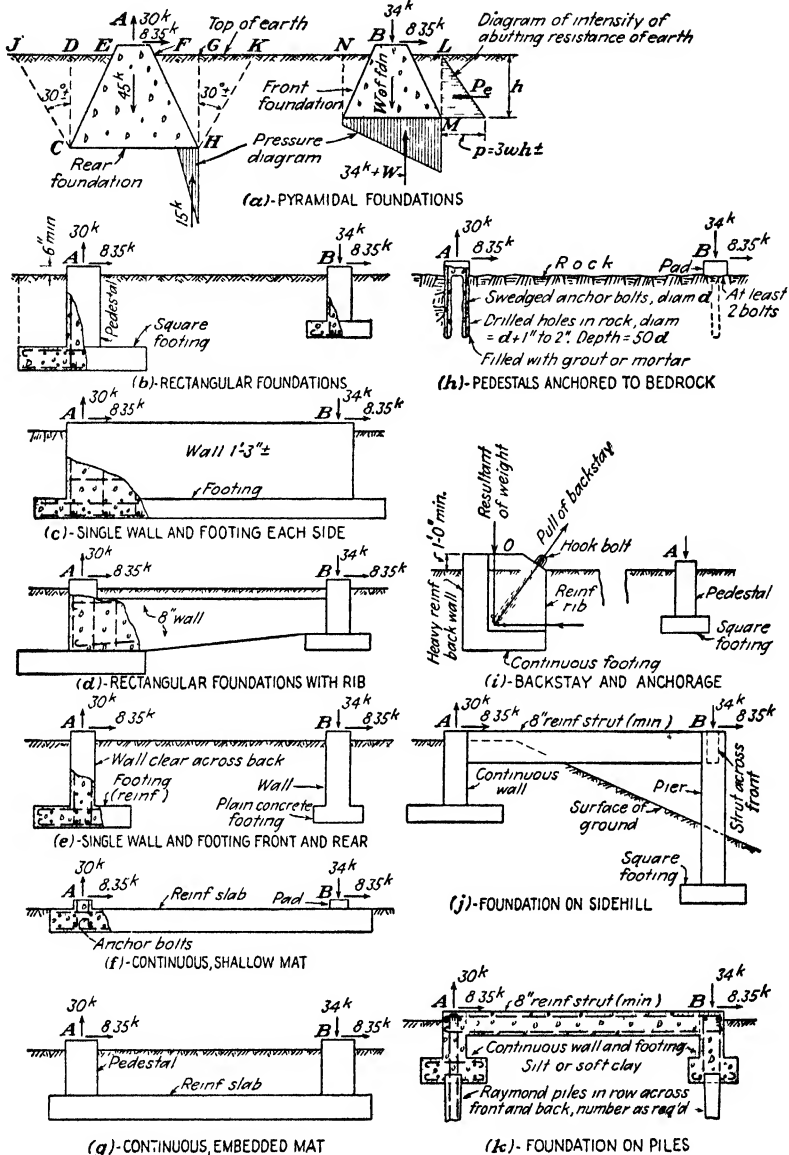 A 30k 8.35k Top of earth
J D E F G K
30°± 45k 30°±
C H
Rear foundation
Pressure diagram
15k
34k B 8.35k
N L
Diagram of intensity of abutting resistance of earth
Front foundation
W of fdn
Pe h
M
p=3wh±
34k+W
(a)-PYRAMIDAL FOUNDATIONS
6"min
30k
A 8.35k
34k
B 8.35k
Pedestal
Square footing
(b)-RECTANGULAR FOUNDATIONS
30k
A 8.35k
34k
B 8.35k
Wall 1'-3"±
Footing
(c)-SINGLE WALL AND FOOTING EACH SIDE
30k
A 8.35k
34k
B 8.35k
8"wall
(d)-RECTANGULAR FOUNDATIONS WITH RIB
30k
A 8.35k
34k
B 8.35k
Wall clear across back
Footing (reinf)
Wall
Plain concrete footing
(e)-SINGLE WALL AND FOOTING FRONT AND REAR
30k
A 8.35k
34k
B 8.35k
Reinf slab
Pad
Anchor bolts
(f)-CONTINUOUS, SHALLOW MAT
30k
A 8.35k
34k
B 8.35k
Pedestal
Reinf slab
(g)-CONTINUOUS, EMBEDDED MAT
30k
A 8.35k
34k
B 8.35k
Pad
Rock
Swedged anchor bolts, diam d
At least 2 bolts
Drilled holes in rock, diam
= d+1" to 2". Depth=50d
Filled with grout or mortar
(h)-PEDESTALS ANCHORED TO BEDROCK
1'-0" min.
Resultant of weight
Pull of backstay
O
Hook bolt
Heavy reinf back wall
Reinf rib
Continuous footing
A
Pedestal
Square footing
(i)-BACKSTAY AND ANCHORAGE
30k
A 8.35k
8"reinf strut (min)
34k
B 8.35k
Continuous wall
Pier
Strut across front
Surface of ground
Square footing
(j)-FOUNDATION ON SIDEHILL
30k
A 8.35k
8"reinf strut (min)
34k
B 8.35k
Continuous wall and footing
Silt or soft clay
Raymond piles in row across
front and back, number as req'd
(k)- FOUNDATION ON PILES